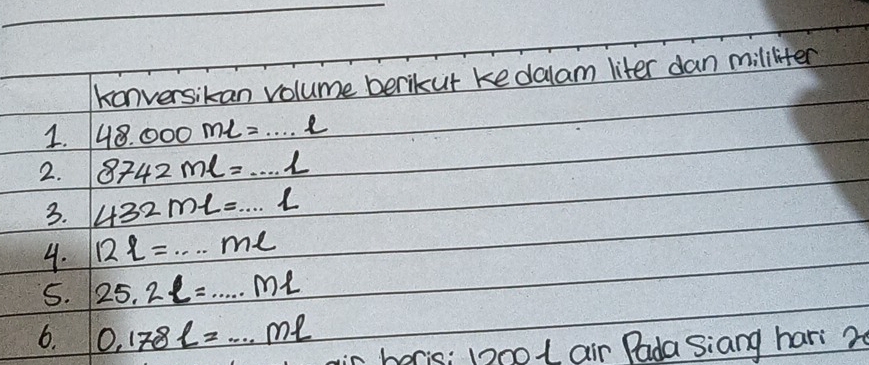 konversikan volume berikut kedalam liter dan mililiter
1. 48.000 ml = .... l
2. 8742 ml = .... l
3. 432 ml = .... l
4. 12 l = .... ml
5. 25,2 l = ..... ml
6. 0,178 l = .... ml
air berisi 1200 l air Pada siang hari